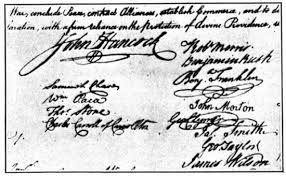 War, conclude Peace, contract Alliances, establish Commerce, and to do
ration, with a firm reliance on the protection of divine Providence, we
John Hancock
Rob Morris
Benjamin Rush
Benj. Franklin
Samuel Chase
Wm Paca
Thos Stone
Charles Carroll of Carrollton
John Morton
Geo Clymer
Jas Smith
Geo Taylor
James Wilson